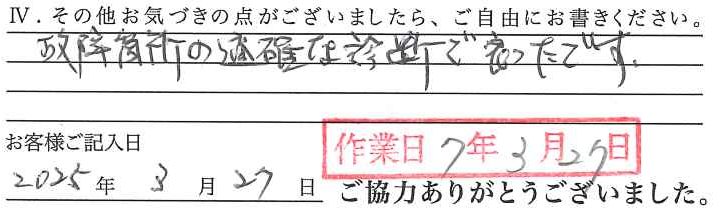 Ⅳ．その他お気づきの点がございましたら、ご自由にお書きください。
故障箇所の適確な診断で良かったです。
お客様ご記入日
作業日 7年 3月27日
2025 年 3 月 27 日
ご協力ありがとうございました。